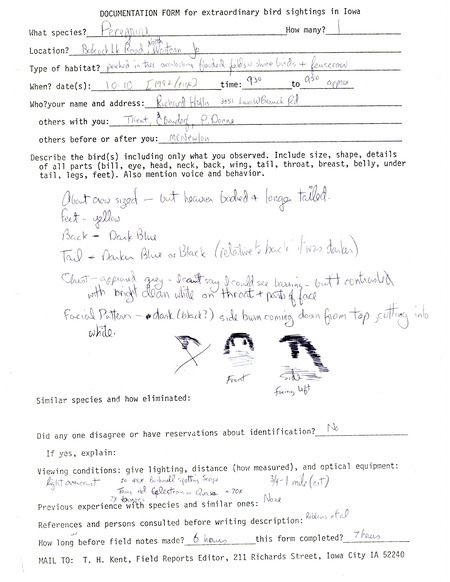 DOCUMENTATION FORM for extraordinary bird sightings in Iowa
What species? Peregrine How many? 1
Location? Road North Western
Type of habitat? perched in tree overlooking flooded fields w shore birds + fencerow
When? date(s): 10-10 [1992 time: 930 to 950 approx
Who?your name and address: Richard Rd
others with you: Trient, P. Donna
others before or after you: McNewlon
Describe the bird(s) including only what you observed. Include size, shape, details
of all parts (bill, eye, head, neck, back, wing, tail, throat, breast, belly, under
tail, legs, feet). Also mention voice and behavior.
About crow sized - but heavier bodied + longer tailed.
Feet - yellow
Back - Dark Blue
Tail - Darker Blue or Black (relative to back it was darker)
Chest - appeared grey - I can't say I could see barring - but it contrasted
with bright clean white on throat + parts of face
Facial Pattern - dark (black?) side burn coming down from top, cutting into
white.
Front
Side
facing left
Similar species and how eliminated:
Did any one disagree or have reservations about identification? No
If yes, explain:
Viewing conditions: give lighting, distance (how measured), and optical equipment:
light overcast Bushnell spotting scope 3/4-1 mile (est)
Previous experience with species and similar ones: None
References and persons consulted before writing description: Robbins et al
How long before field notes made? 6 hours this form completed? 7 hours
MAIL TO: T. H. Kent, Field Reports Editor, 211 Richards Street, Iowa City IA 52240